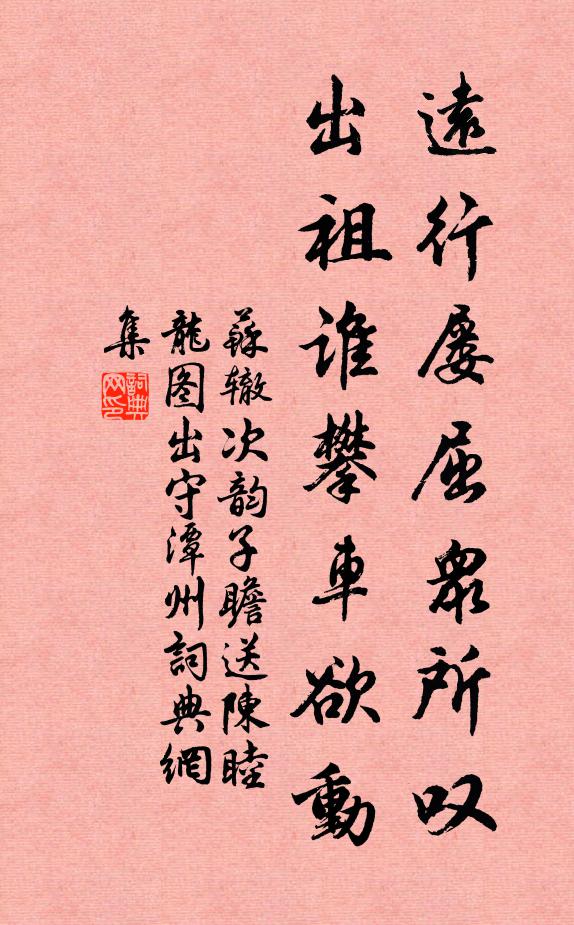 遠行屡屈衆所叹
出祖谁攀車欲動
蘇辙次韵子瞻送陳睦
龍图出守潭州詞典網
集
詞典网印